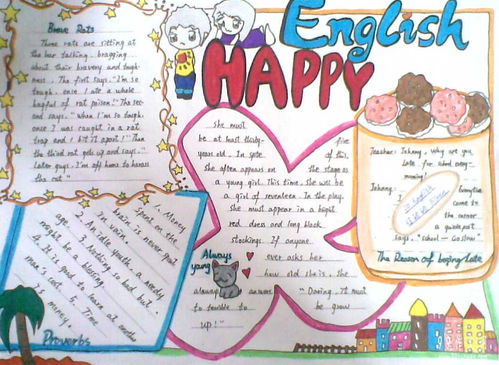 English
HAPPY
Brave Rats
Three rats are sitting at
the bar talking, bragging
about their bravery and tough-
ness. The first says, "I'm so
tough, once I ate a whole
bagful of rat poison!" The sec-
ond says, "When I'm so tough,
once I was caught in a rat
trap and I bit it apart!" Then
the third rat gets up and says,
Later guys, I'm off home to harass
the cat."
She must
be at least thirty-five
years old. In spite of this,
she often appears on the stage as
a young girl. This time, she will be
a girl of seventeen. In the play,
she must appear in a bright
red dress and long black
stockings. If anyone
ever asks her
how old she is, she
always answers, "Darling, it must
be terrible to be grow
up!"
Always
yang
Teacher: Johnny, Why are you
late for school every
morning?
Johnny: Every time
I come to
the corner
a guidepost
says, "School - Go slow".
The Reason of being late
Money
spent on the
brain is never spent
in vain.
2. An idle youth, a needy
age. 3. Nothing so bad but
might be a blessing.
4. It is good to learn at another
man's cost. 5. Time
is money.
Proverbs